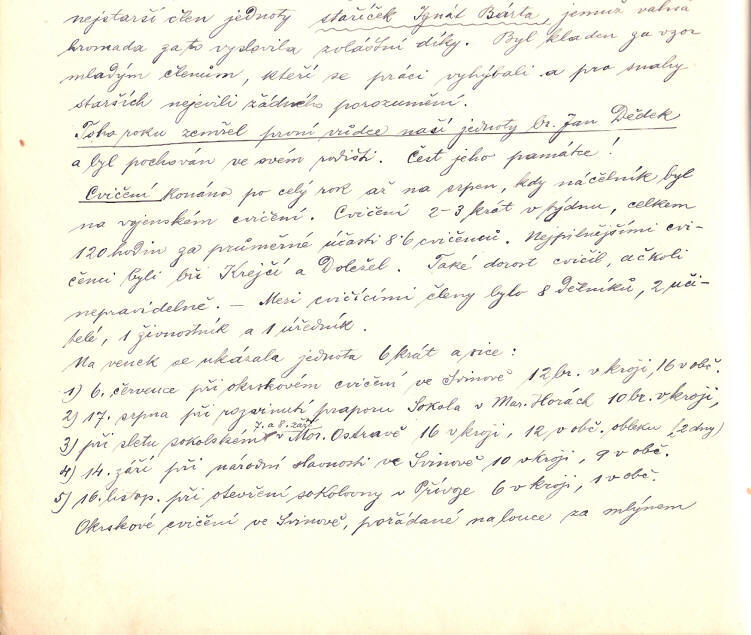 nejstarší člen jednoty stařiček Ignát Bárta, jemuž valná
hromada za to vyslovila zvláštní díky. Byl kladen za vzor
mladým členům, kteří se práci vyhýbali a pro snahy
starších nejevili žádného porozumění.
Toho roku zemřel první vůdce naší jednoty br. Jan Dědek
a byl pochován ve svém rodišti. Čest jeho památce!
Cvičení konáno po celý rok až na srpen, kdy náčelník byl
na vojenském cvičení. Cvičení 2-3 krát v týdnu, celkem
120 hodin za průměrné účasti 8·6 cvičenců. Nejpilnějšími cvi-
čenci byli bři Krejčí a Doležel. Také dorost cvičil, ačkoli
nepravidelně. — Mezi cvičícími členy bylo 8 dělníků, 2 uči-
telé, 1 živnostník a 1 úředník.
Na venek se ukázala jednota 6 krát a sice:
1) 6. července při okrskovém cvičení ve Svinově 12 br. v kroji, 16 v obč.
2) 17. srpna při rozvinutí praporu Sokola v Mar. Horách 10 br. v kroji,
7. a 8. září
3) při sletu sokolském v Mor. Ostravě 16 v kroji, 12 v obč. obleku (2 dny)
4) 14. září při národní slavnosti ve Svinově 10 v kroji, 9 v obč.
5) 16. listop. při otevření sokolovny v Přívoze 6 v kroji, 1 v obč.
Okrskové cvičení ve Svinově, pořádané na louce za mlýnem